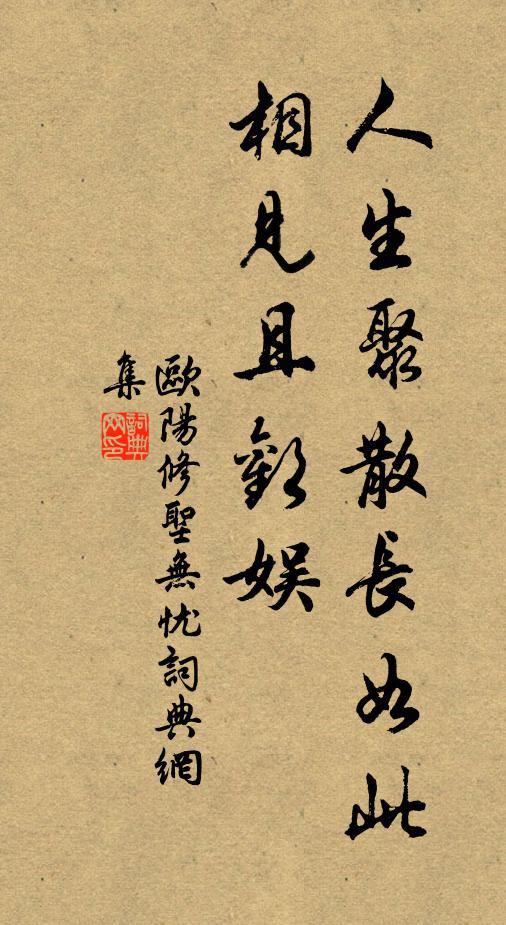 人生聚散長如此
相見且歡娛
歐陽修聖無忧詞典網
集
詞典网印